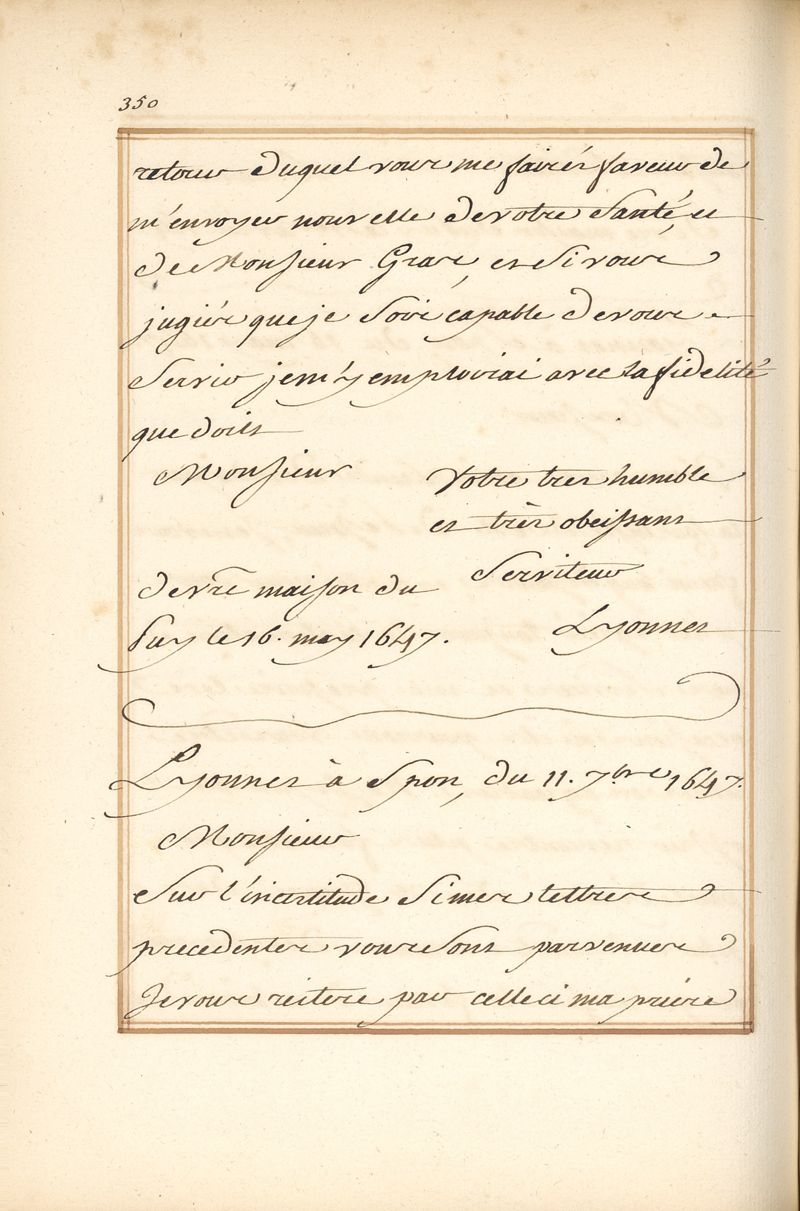 350
retour duquel vous me fairés faveur de
m'envoyer nouvelle de votre Santé, et
de Monsieur Gras, et Si vous
jugiés que je Sois capable de vous
Servir jem'y emploiai avec la fidelité
que doits
Monsieur
Votre tres humble
et très obeissant
Serviteur
de vre maison du
Puy le 16. may 1647.
Lyonnes
Lyonnes à Spon, du 11. 7bre 1647.
Monsieur
Sur l'incertitude Si mes lettres
precedentes vous Sont parvenues
Je vous reitere par celle ci ma priere